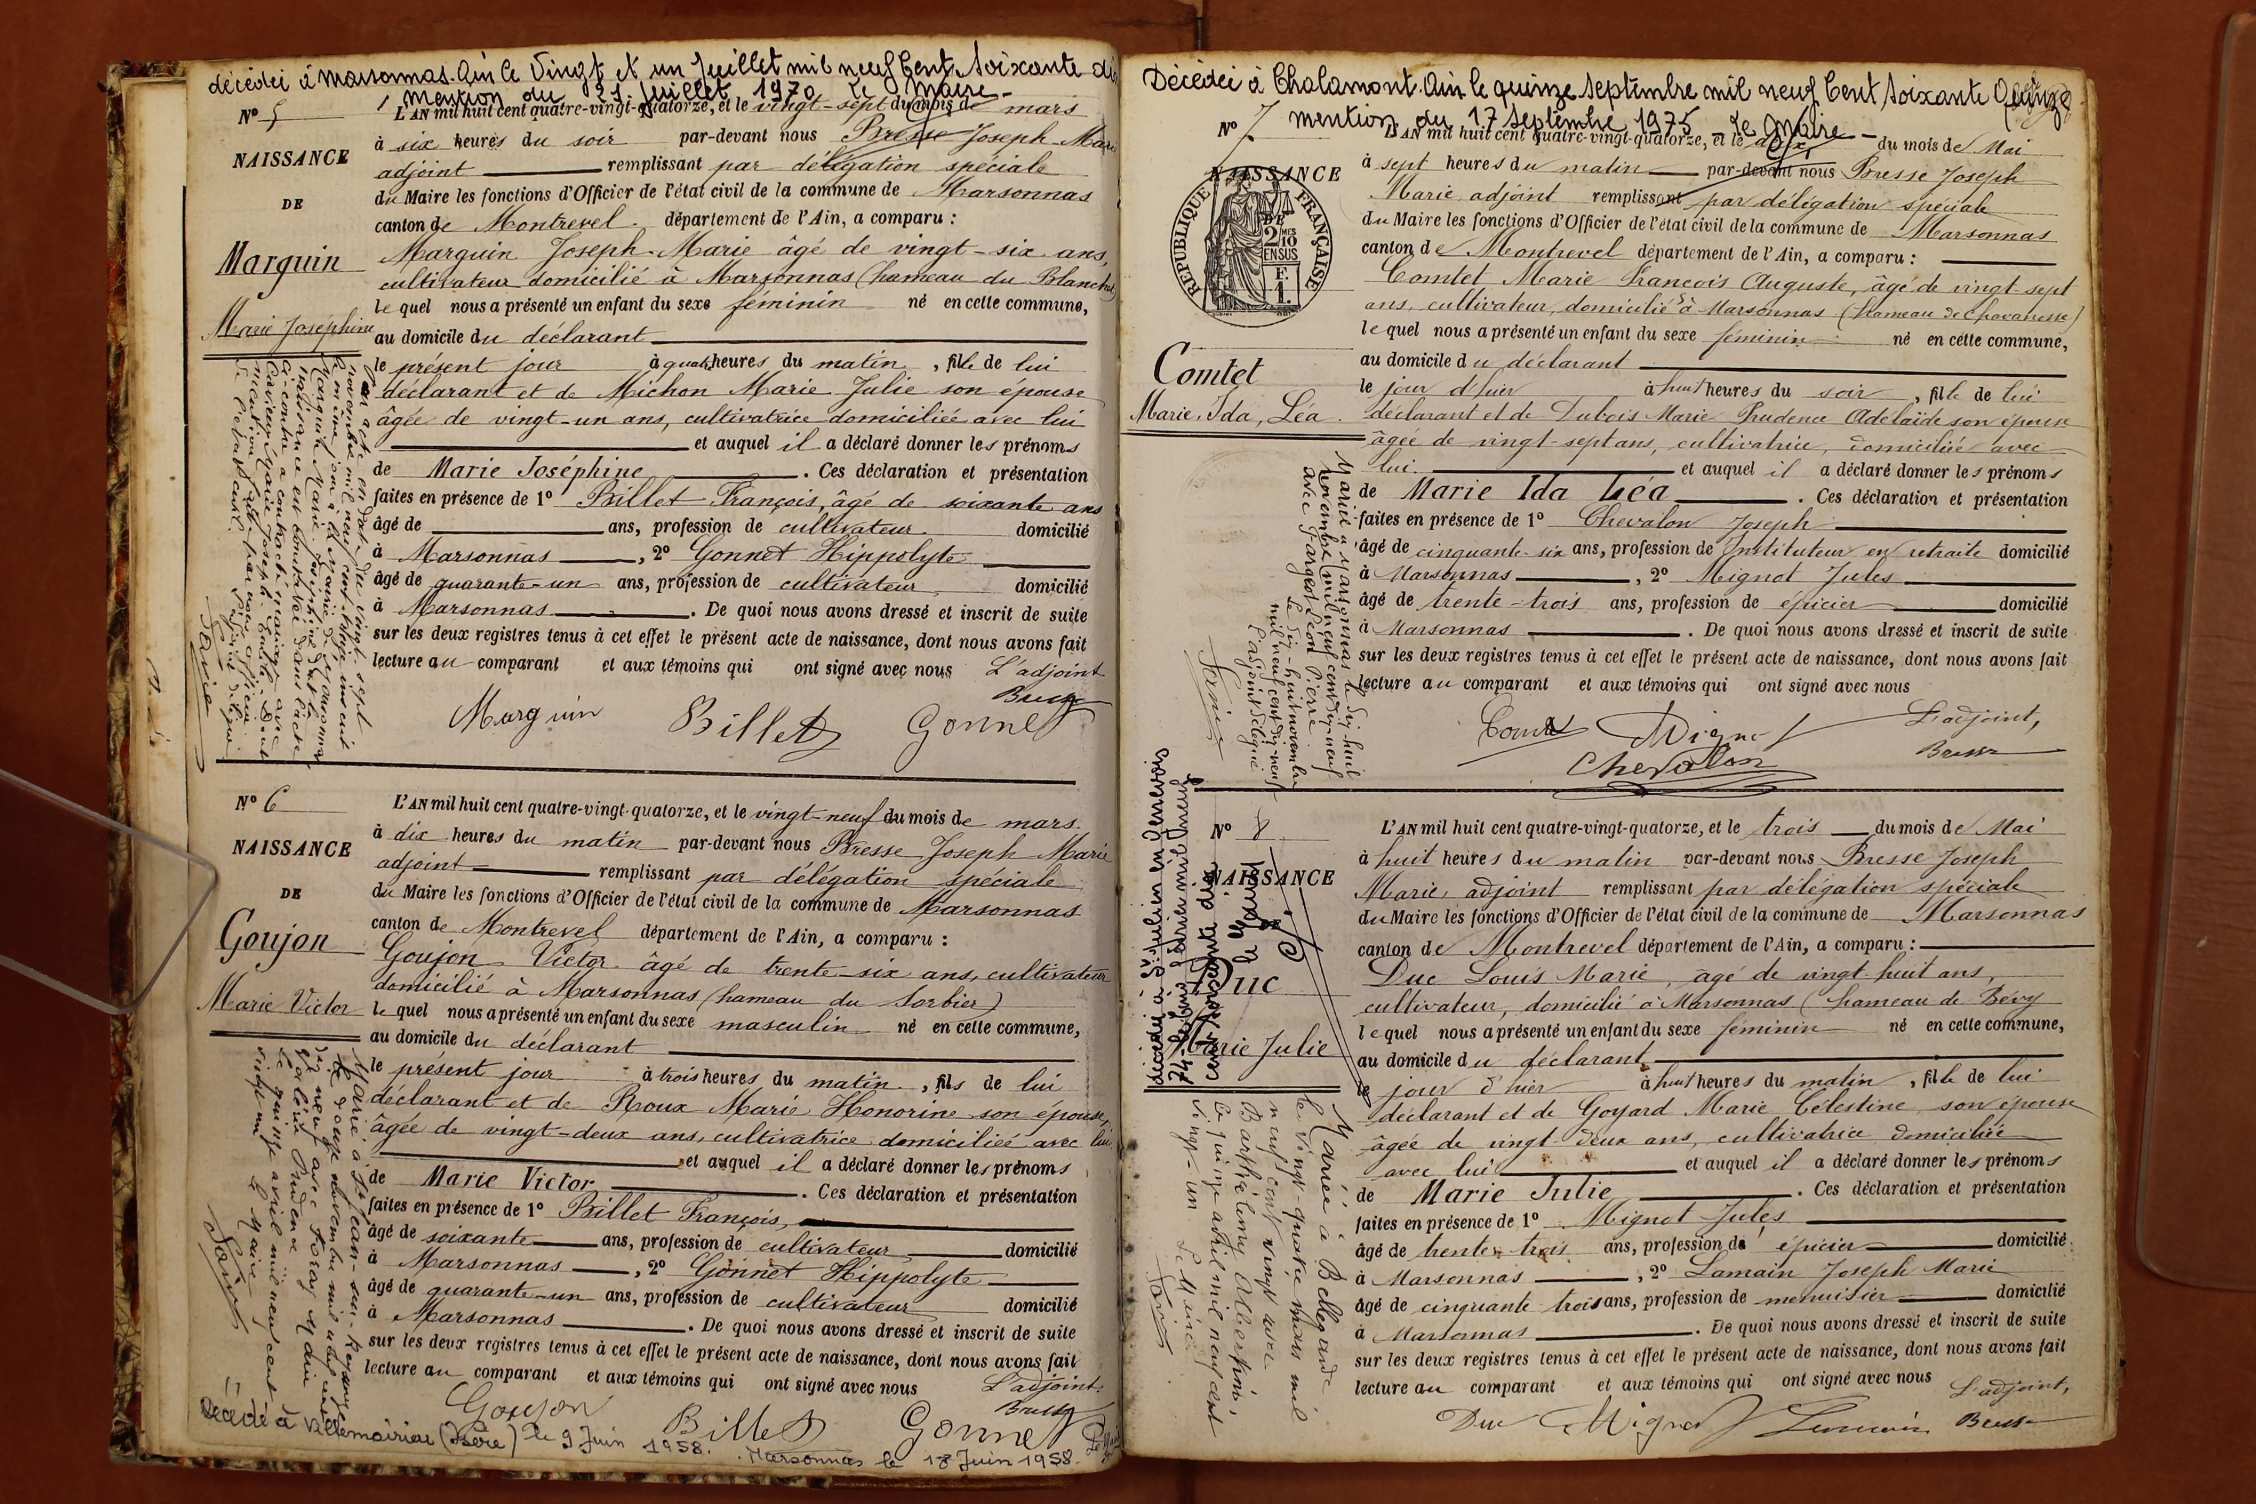 décédée à Marsonnas. Ain le Vingt et un Juillet mil neuf Cent Soixante dix
mention du 21 Juillet 1970 le Maire
N° 5
NAISSANCE
DE
Marguin
Marie Joséphine
L'AN mil huit cent quatre-vingt-quatorze, et le vingt-sept du mois de mars
à six heures du soir par-devant nous Bresse Joseph Marie
adjoint remplissant par délégation spéciale
du Maire les fonctions d'Officier de l'état civil de la commune de Marsonnas
canton de Montrevel département de l'Ain, a comparu :
Marguin Joseph-Marie âgé de vingt-six ans,
cultivateur domicilié à Marsonnas (hameau du Blanchet)
le quel nous a présenté un enfant du sexe féminin né en cette commune,
au domicile du déclarant
le présent jour à quatre heures du matin, fille de lui
déclarant et de Michon Marie Julie son épouse
âgée de vingt-un ans, cultivatrice domiciliée avec lui
et auquel il a déclaré donner les prénoms
de Marie Joséphine. Ces déclaration et présentation
faites en présence de 1° Billet François, âgé de soixante ans
âgé de ans, profession de cultivateur domicilié
à Marsonnas, 2° Gonnet Hippolyte
âgé de quarante-un ans, profession de cultivateur domicilié
à Marsonnas. De quoi nous avons dressé et inscrit de suite
sur les deux registres tenus à cet effet le présent acte de naissance, dont nous avons fait
lecture au comparant et aux témoins qui ont signé avec nous L'adjoint
Bresse
Marguin Billet Gonnet
N° 6
NAISSANCE
DE
Goujon
Marie Victor
L'AN mil huit cent quatre-vingt-quatorze, et le vingt-neuf du mois de mars
à dix heures du matin par-devant nous Bresse Joseph Marie
adjoint remplissant par délégation spéciale
du Maire les fonctions d'Officier de l'état civil de la commune de Marsonnas
canton de Montrevel département de l'Ain, a comparu :
Goujon Victor âgé de trente-six ans, cultivateur
domicilié à Marsonnas (hameau du Sorbier)
le quel nous a présenté un enfant du sexe masculin né en cette commune,
au domicile du déclarant
le présent jour à trois heures du matin, fils de lui
déclarant et de Roux Marie Honorine son épouse,
âgée de vingt-deux ans, cultivatrice domiciliée avec lui
et auquel il a déclaré donner les prénoms
de Marie Victor. Ces déclaration et présentation
faites en présence de 1° Billet François,
âgé de soixante ans, profession de cultivateur domicilié
à Marsonnas, 2° Gonnet Hippolyte
âgé de quarante-un ans, profession de cultivateur domicilié
à Marsonnas. De quoi nous avons dressé et inscrit de suite
sur les deux registres tenus à cet effet le présent acte de naissance, dont nous avons fait
lecture au comparant et aux témoins qui ont signé avec nous L'adjoint
Bresse
Goujon Billet Gonnet
Marié à St Jean-sur-Reyssouze
le douze novembre mil neuf cent
dix neuf avec Foray Marie
Prudence
Le quinze avril mil neuf cent
vingt-un Le Maire
Décédé à Villemoirieu (Isère) le 9 Juin 1958. Marsonnas le 18 Juin 1958.
Décédée à Chalamont. Ain le quinze Septembre mil neuf Cent Soixante Quinze
mention du 17 Septembre 1975 le Maire
N° 7
NAISSANCE
DE
RÉPUBLIQUE FRANÇAISE
2/10MES
EN SUS
F.
1.
Comtet
Marie, Ida, Léa
L'AN mil huit cent quatre-vingt-quatorze, et le deux du mois de Mai
à sept heures du matin par-devant nous Bresse Joseph
Marie adjoint remplissant par délégation spéciale
du Maire les fonctions d'Officier de l'état civil de la commune de Marsonnas
canton de Montrevel département de l'Ain, a comparu :
Comtet Marie François Auguste, âgé de vingt sept
ans, cultivateur, domicilié à Marsonnas (hameau de Chavanesse)
le quel nous a présenté un enfant du sexe féminin né en cette commune,
au domicile du déclarant
le jour d'hier à huit heures du soir, fille de lui
déclarant et de Dubois Marie Prudence Adelaïde son épouse
âgée de vingt-sept ans, cultivatrice, domiciliée avec
lui. et auquel il a déclaré donner les prénoms
de Marie Ida Léa. Ces déclaration et présentation
faites en présence de 1° Chevalon Joseph
âgé de cinquante-six ans, profession de Instituteur en retraite domicilié
à Marsonnas, 2° Mignot Jules
âgé de trente-trois ans, profession de épicier domicilié
à Marsonnas. De quoi nous avons dressé et inscrit de suite
sur les deux registres tenus à cet effet le présent acte de naissance, dont nous avons fait
lecture au comparant et aux témoins qui ont signé avec nous
Comtet Mignot L'adjoint,
Chevalon Bresse
Mariée à Marsonnas le dix-huit
novembre mil neuf cent dix-neuf
avec Fargeot Léon Pierre
Le dix-huit novembre
mil neuf cent dix-neuf
L'adjoint délégué
N° 8
NAISSANCE
Duc
Marie Julie
L'AN mil huit cent quatre-vingt-quatorze, et le trois du mois de Mai
à huit heures du matin par-devant nous Bresse Joseph
Marie, adjoint remplissant par délégation spéciale
du Maire les fonctions d'Officier de l'état civil de la commune de Marsonnas
canton de Montrevel département de l'Ain, a comparu :
Duc Louis Marie, âgé de vingt huit ans,
cultivateur, domicilié à Marsonnas (hameau de Bévy
le quel nous a présenté un enfant du sexe féminin né en cette commune,
au domicile du déclarant
le jour d'hier à huit heures du matin, fille de lui
déclarant et de Goyard Marie Célestine son épouse
âgée de vingt deux ans, cultivatrice domiciliée
avec lui et auquel il a déclaré donner les prénoms
de Marie Julie. Ces déclaration et présentation
faites en présence de 1° Mignot Jules
âgé de trente-trois ans, profession de épicier domicilié
à Marsonnas, 2° Lamain Joseph Marie
âgé de cinquante trois ans, profession de menuisier domicilié
à Marsonnas. De quoi nous avons dressé et inscrit de suite
sur les deux registres tenus à cet effet le présent acte de naissance, dont nous avons fait
lecture au comparant et aux témoins qui ont signé avec nous L'adjoint,
Duc Mignot Lamain Bresse
Mariée à Bellegarde
le vingt-quatre mars mil
neuf cent vingt avec
Barthélemy
Le quinze avril mil neuf cent
vingt-un Le Maire